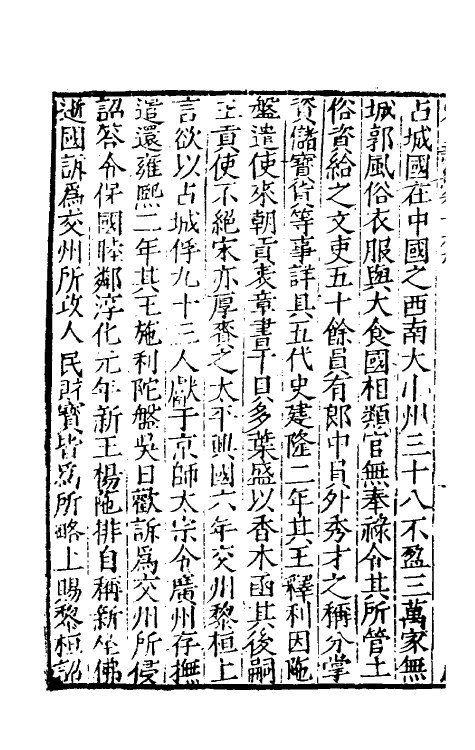 占城國在中國之西南大小州三十八不盈三萬家無
城郭風俗衣服與大食國相類官無奉祿令其所管土
俗資給之文吏五十餘員有郎中員外秀才之稱分掌
資儲寶貨等事詳具五代史建隆二年其王釋利因陁
盤遣使來朝貢表章書于貝多葉盛以香木函其後嗣
王貢使不絕宋亦厚賚之太平興國六年交州黎桓上
言欲以占城俘九十三人獻于京師太宗令廣州存撫
遣還雍熙二年其王施利陀盤吳日歡訴為交州所侵
詔荅令保國睦鄰淳化元年新王楊陁排自稱新坐佛
逝國訴為交州所攻人民財寶皆為所略上賜黎桓詔